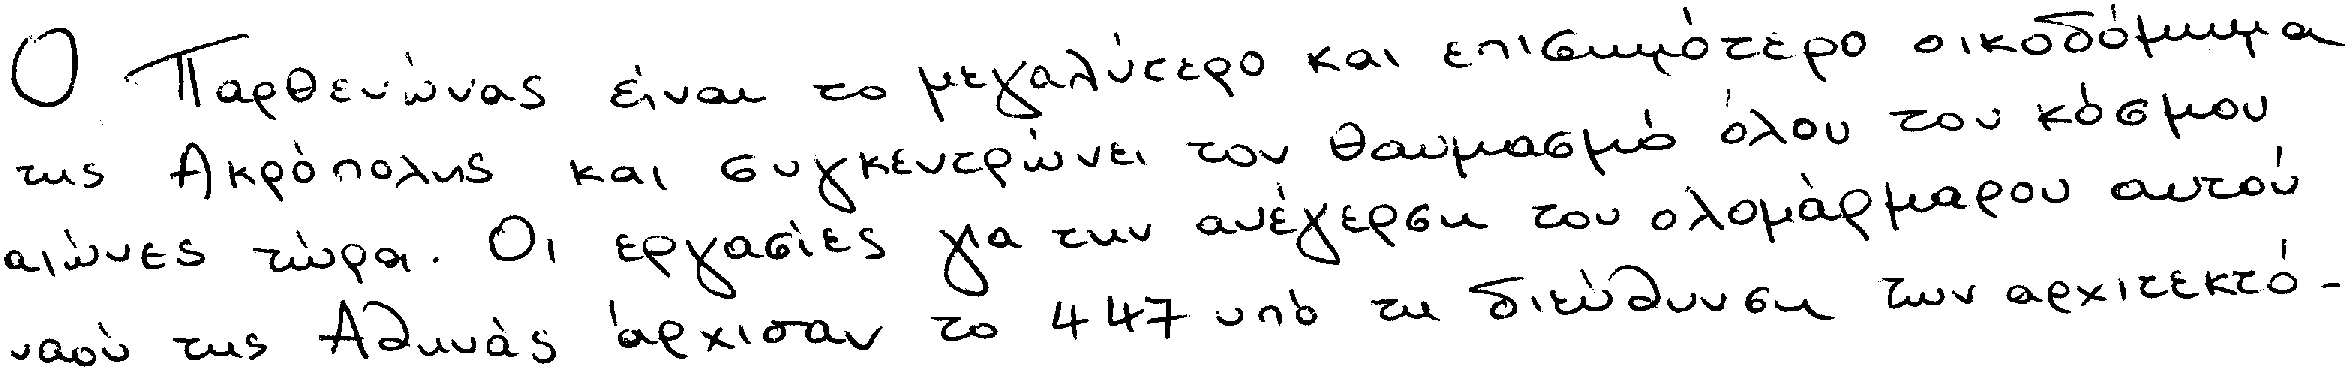 Ο Παρθενώνας είναι το μεγαλύτερο και επισημότερο οικοδόμημα
της Ακρόπολης και συγκεντρώνει τον θαυμασμό όλου του κόσμου
αιώνες τώρα. Οι εργασίες για την ανέγερση του ολομάρμαρου αυτού
ναού της Αθηνάς άρχισαν το 447 υπό τη διεύθυνση των αρχιτεκτό-